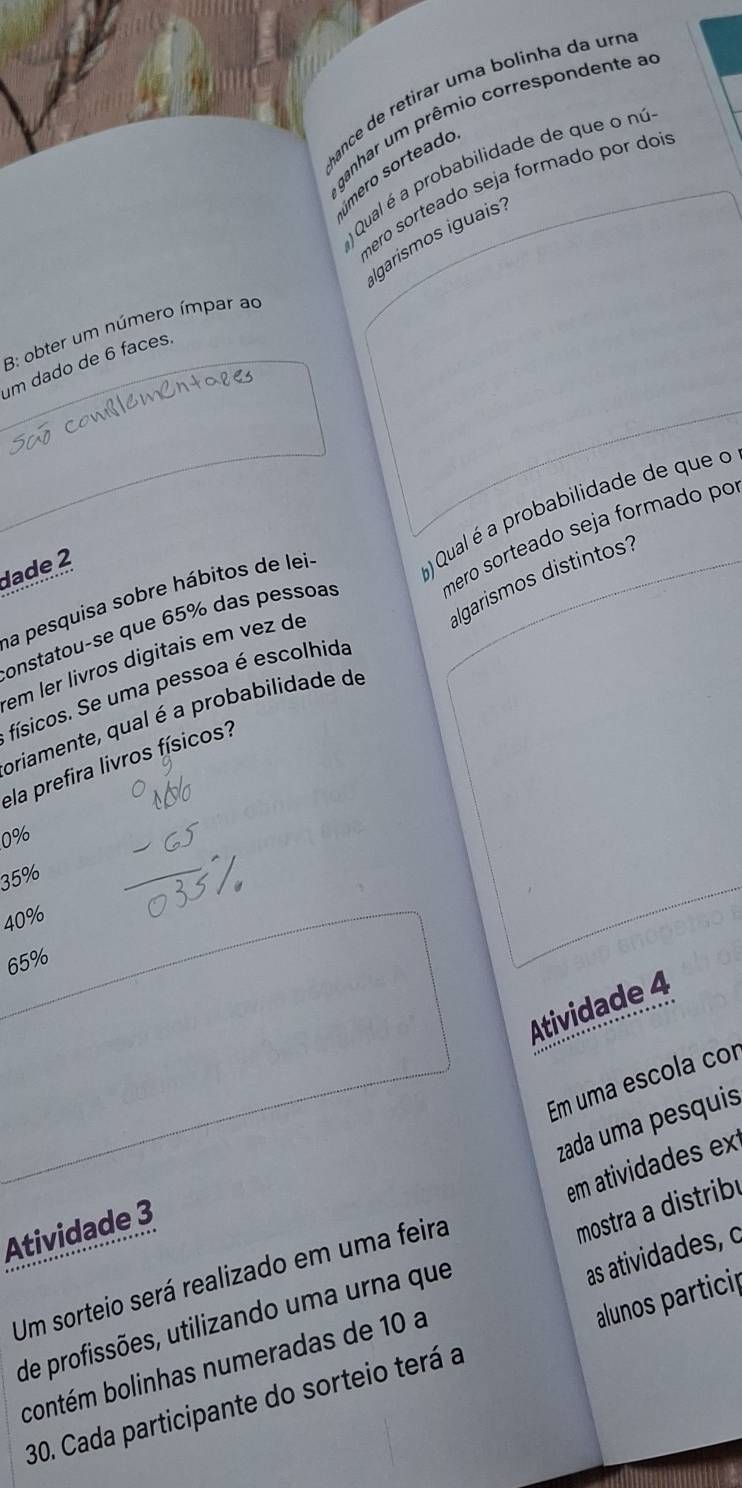 B: obter um número ímpar ao
um dado de 6 faces.
São complementares
dade 2
ma pesquisa sobre hábitos de lei-
constatou-se que 65% das pessoas
rem ler livros digitais em vez de
s físicos. Se uma pessoa é escolhida
toriamente, qual é a probabilidade de
ela prefira livros físicos?
0%
35%
40%
65%
9
0
- 65
035%
Atividade 3
Um sorteio será realizado em uma feira
de profissões, utilizando uma urna que
contém bolinhas numeradas de 10 a
30. Cada participante do sorteio terá a
chance de retirar uma bolinha da urna
e ganhar um prêmio correspondente ao
número sorteado.
a) Qual é a probabilidade de que o nú-
mero sorteado seja formado por dois
algarismos iguais?
b) Qual é a probabilidade de que o
mero sorteado seja formado por
algarismos distintos?
Atividade 4
Em uma escola con
zada uma pesquis
em atividades ext
mostra a distribu
as atividades, c
alunos particip